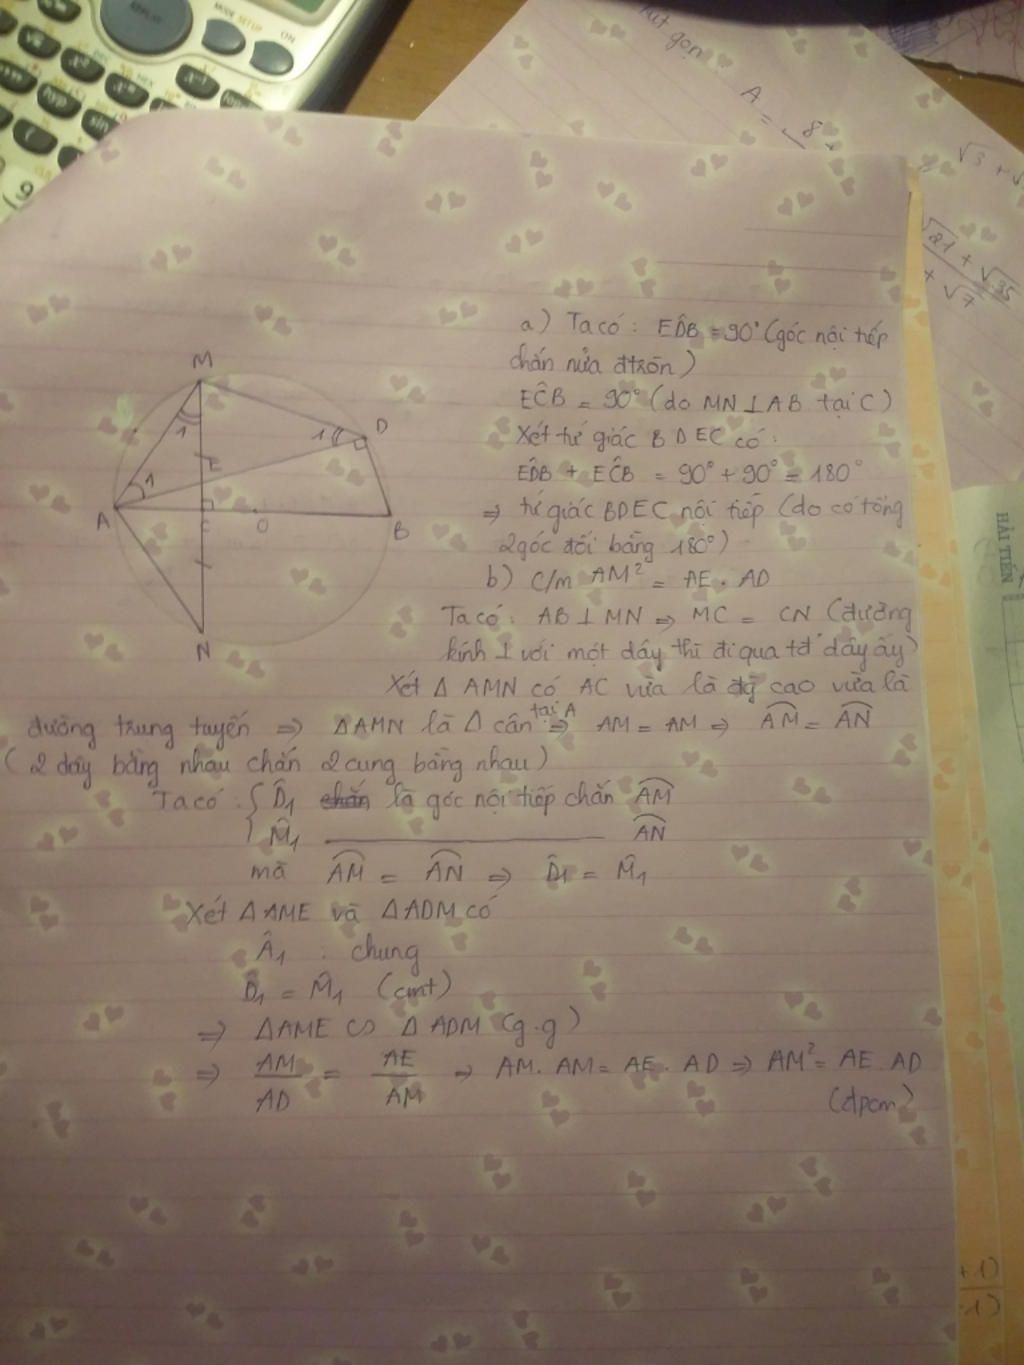 MODE SETUP
ON
REPLAY
hyp
sin
Rút gọn
A = 8
√3 + √
√21 + √35
+ √7
HẢI TIẾN
M
1
D
1
E
1
A
C
O
B
N
a) Ta có : ED̂B = 90° (góc nội tiếp
chắn nửa đtròn)
EĈB = 90° (do MN ⊥ AB tại C)
Xét tứ giác BDEC có :
ED̂B + EĈB = 90° + 90° = 180°
⇒ tứ giác BDEC nội tiếp (do có tổng
2 góc đối bằng 180°)
b) C/m AM² = AE . AD
Ta có : AB ⊥ MN ⇒ MC = CN (đường
kính ⊥ với một dây thì đi qua tđ dây ấy)
Xét Δ AMN có AC vừa là đg cao vừa là
đường trung tuyến ⇒ ΔAMN là Δ cân tại A ⇒ AM = AM ⇒ A͡M = A͡N
( 2 dây bằng nhau chắn 2 cung bằng nhau)
Ta có : { D̂₁ chắn là góc nội tiếp chắn A͡M
M̂₁ ———— A͡N
mà A͡M = A͡N ⇒ D̂₁ = M̂₁
Xét ΔAME và ΔADM có
Â₁ : chung
D̂₁ = M̂₁ (cmt)
⇒ ΔAME ∽ ΔADM (g.g)
⇒ AM/AD = AE/AM ⇒ AM. AM = AE . AD ⇒ AM² = AE . AD
(đpcm)